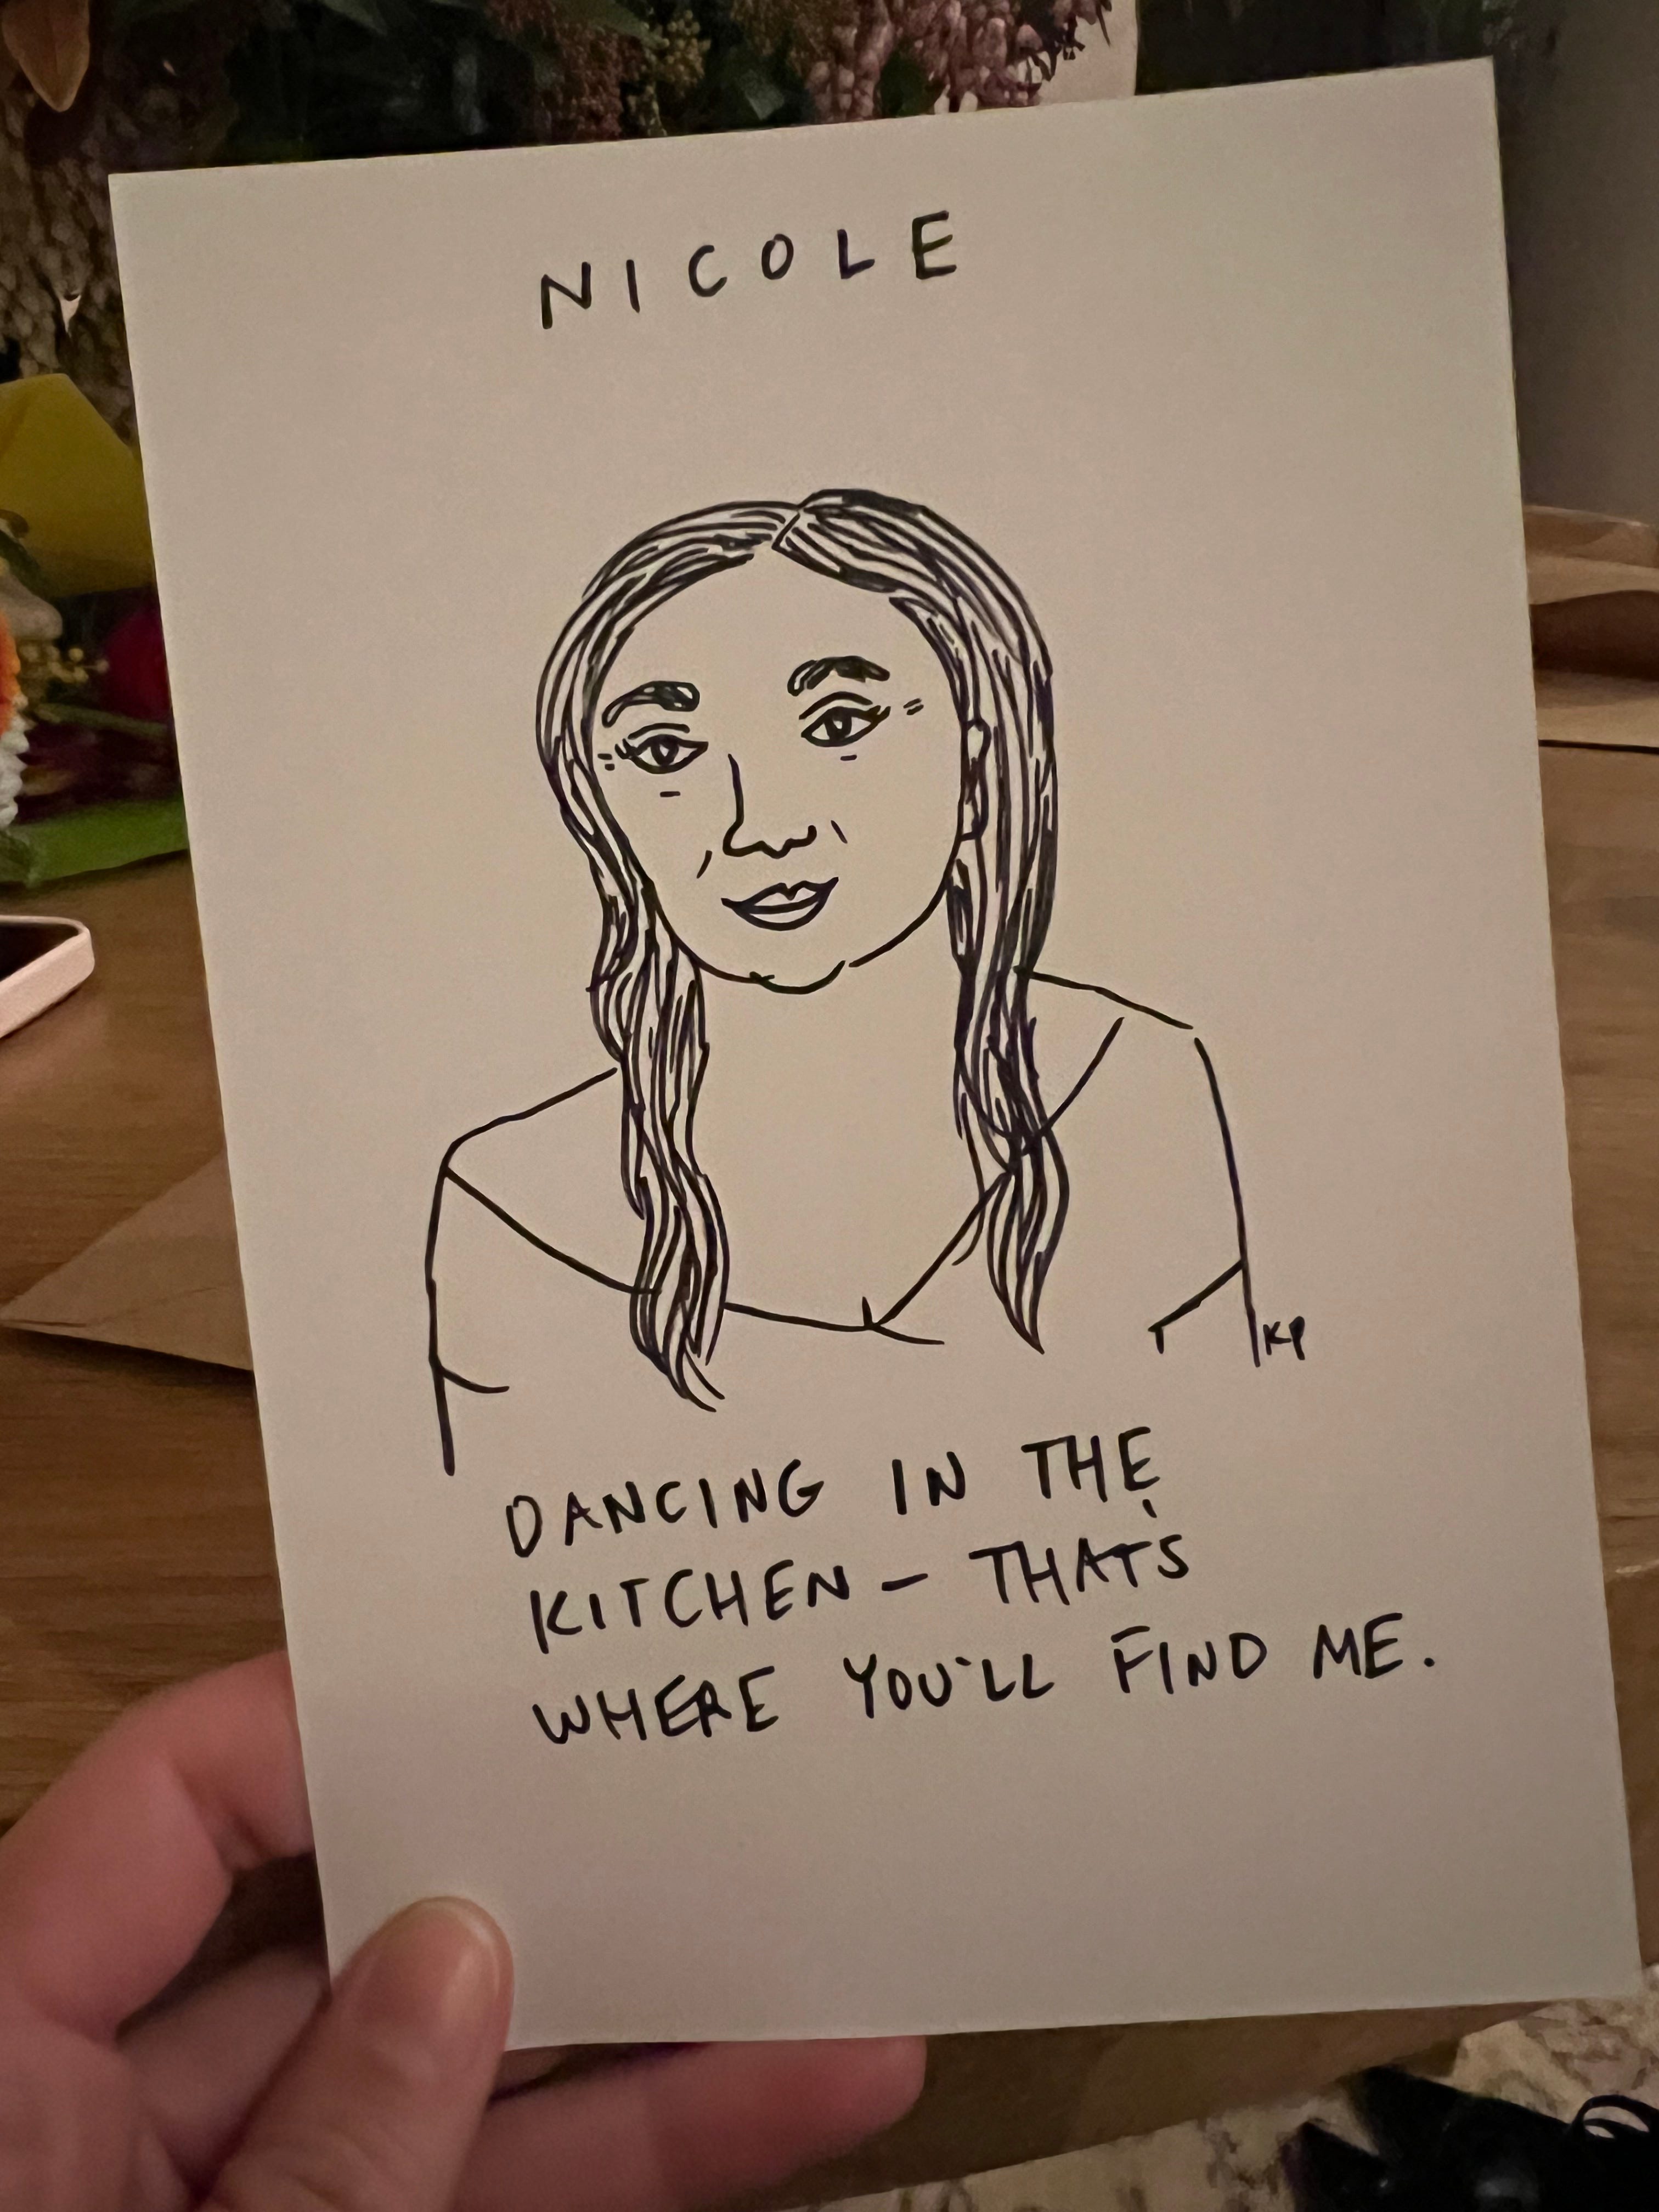 NICOLE
KP
DANCING IN THE
KITCHEN – THAT'S
WHERE YOU'LL FIND ME.